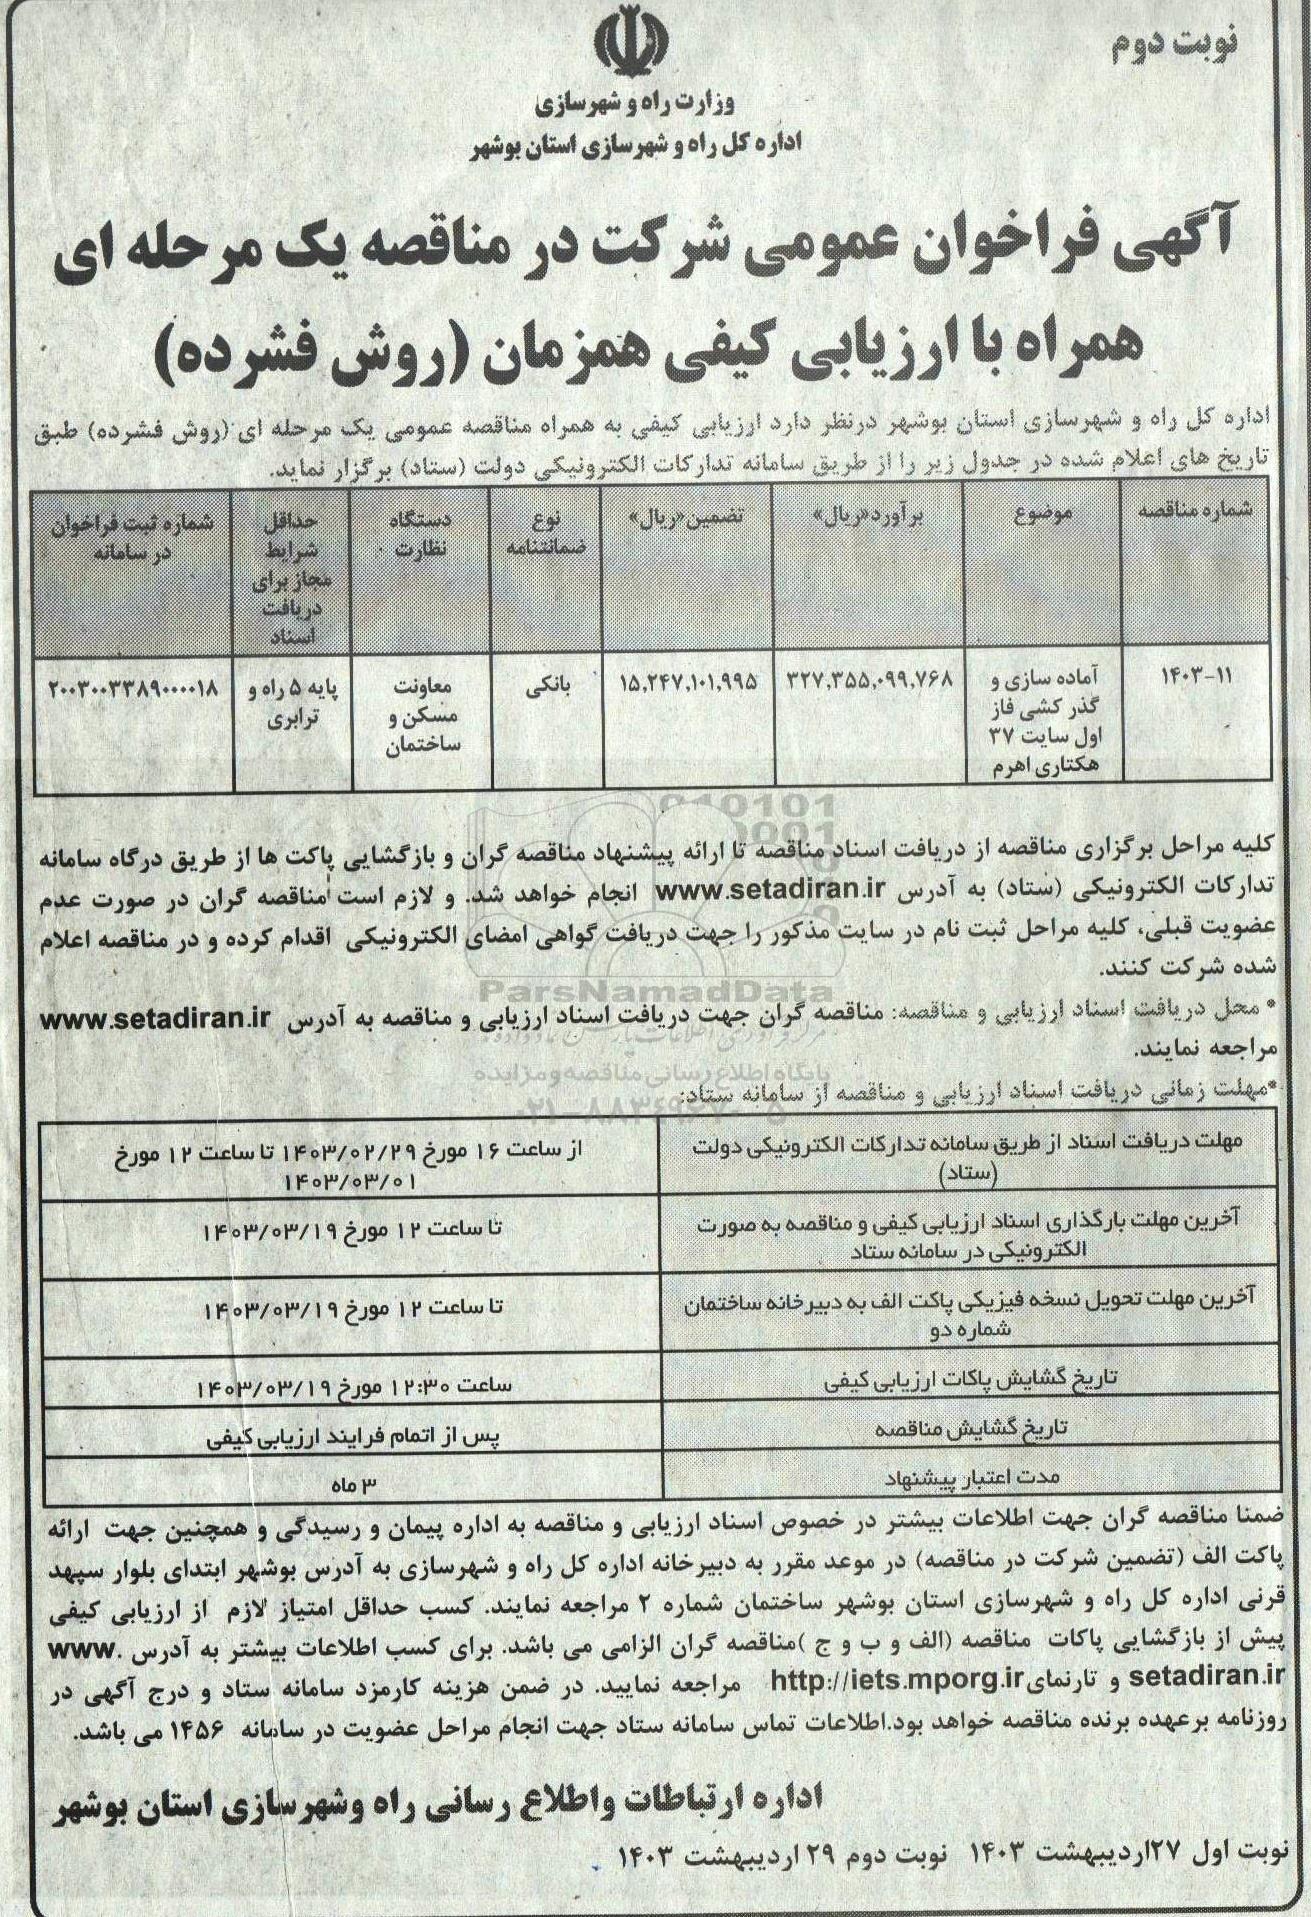 نوبت دوم
وزارت راه و شهرسازی
اداره کل راه و شهرسازی استان بوشهر
آگهی فراخوان عمومی شرکت در مناقصه یک مرحله ای
همراه با ارزیابی کیفی همزمان (روش فشرده)
اداره کل راه و شهرسازی استان بوشهر درنظر دارد ارزیابی کیفی به همراه مناقصه عمومی یک مرحله ای (روش فشرده) طبق
تاریخ های اعلام شده در جدول زیر را از طریق سامانه تدارکات الکترونیکی دولت (ستاد) برگزار نماید.
شماره مناقصه
موضوع
برآورد«ریال»
تضمین«ریال»
نوع
ضمانتنامه
دستگاه
نظارت
حداقل
شرایط
مجاز برای
دریافت
اسناد
شماره ثبت فراخوان
در سامانه
۱۴۰۳-۱۱
آماده سازی و
گذر کشی فاز
اول سایت ۳۷
هکتاری اهرم
۳۲۷,۳۵۵,۰۹۹,۷۶۸
۱۵,۲۴۷,۱۰۱,۹۹۵
بانکی
معاونت
مسکن و
ساختمان
پایه ۵ راه و
ترابری
۲۰۰۳۰۰۳۳۸۹۰۰۰۰۱۸
کلیه مراحل برگزاری مناقصه از دریافت اسناد مناقصه تا ارائه پیشنهاد مناقصه گران و بازگشایی پاکت ها از طریق درگاه سامانه
تدارکات الکترونیکی (ستاد) به آدرس www.setadiran.ir انجام خواهد شد. و لازم است مناقصه گران در صورت عدم
عضویت قبلی، کلیه مراحل ثبت نام در سایت مذکور را جهت دریافت گواهی امضای الکترونیکی اقدام کرده و در مناقصه اعلام
شده شرکت کنند.
* محل دریافت اسناد ارزیابی و مناقصه: مناقصه گران جهت دریافت اسناد ارزیابی و مناقصه به آدرس www.setadiran.ir
مراجعه نمایند.
*مهلت زمانی دریافت اسناد ارزیابی و مناقصه از سامانه ستاد:
ParsNamadData
پایگاه اطلاع رسانی مناقصه و مزایده
مهلت دریافت اسناد از طریق سامانه تدارکات الکترونیکی دولت
(ستاد)
از ساعت ۱۶ مورخ ۱۴۰۳/۰۲/۲۹ تا ساعت ۱۲ مورخ
۱۴۰۳/۰۳/۰۱
آخرین مهلت بارگذاری اسناد ارزیابی کیفی و مناقصه به صورت
الکترونیکی در سامانه ستاد
تا ساعت ۱۲ مورخ ۱۴۰۳/۰۳/۱۹
آخرین مهلت تحویل نسخه فیزیکی پاکت الف به دبیرخانه ساختمان
شماره دو
تا ساعت ۱۲ مورخ ۱۴۰۳/۰۳/۱۹
تاریخ گشایش پاکات ارزیابی کیفی
ساعت ۱۲:۳۰ مورخ ۱۴۰۳/۰۳/۱۹
تاریخ گشایش مناقصه
پس از اتمام فرایند ارزیابی کیفی
مدت اعتبار پیشنهاد
۳ ماه
ضمنا مناقصه گران جهت اطلاعات بیشتر در خصوص اسناد ارزیابی و مناقصه به اداره پیمان و رسیدگی و همچنین جهت ارائه
پاکت الف (تضمین شرکت در مناقصه) در موعد مقرر به دبیرخانه اداره کل راه و شهرسازی به آدرس بوشهر ابتدای بلوار سپهد
قرنی اداره کل راه و شهرسازی استان بوشهر ساختمان شماره ۲ مراجعه نمایند. کسب حداقل امتیاز لازم از ارزیابی کیفی
پیش از بازگشایی پاکات مناقصه (الف و ب و ج )مناقصه گران الزامی می باشد. برای کسب اطلاعات بیشتر به آدرس www.
setadiran.ir و تارنمای http://iets.mporg.ir مراجعه نمایید. در ضمن هزینه کارمزد سامانه ستاد و درج آگهی در
روزنامه برعهده برنده مناقصه خواهد بود.اطلاعات تماس سامانه ستاد جهت انجام مراحل عضویت در سامانه ۱۴۵۶ می باشد.
اداره ارتباطات واطلاع رسانی راه وشهرسازی استان بوشهر
نوبت اول ۲۷اردیبهشت ۱۴۰۳ نوبت دوم ۲۹ اردیبهشت ۱۴۰۳